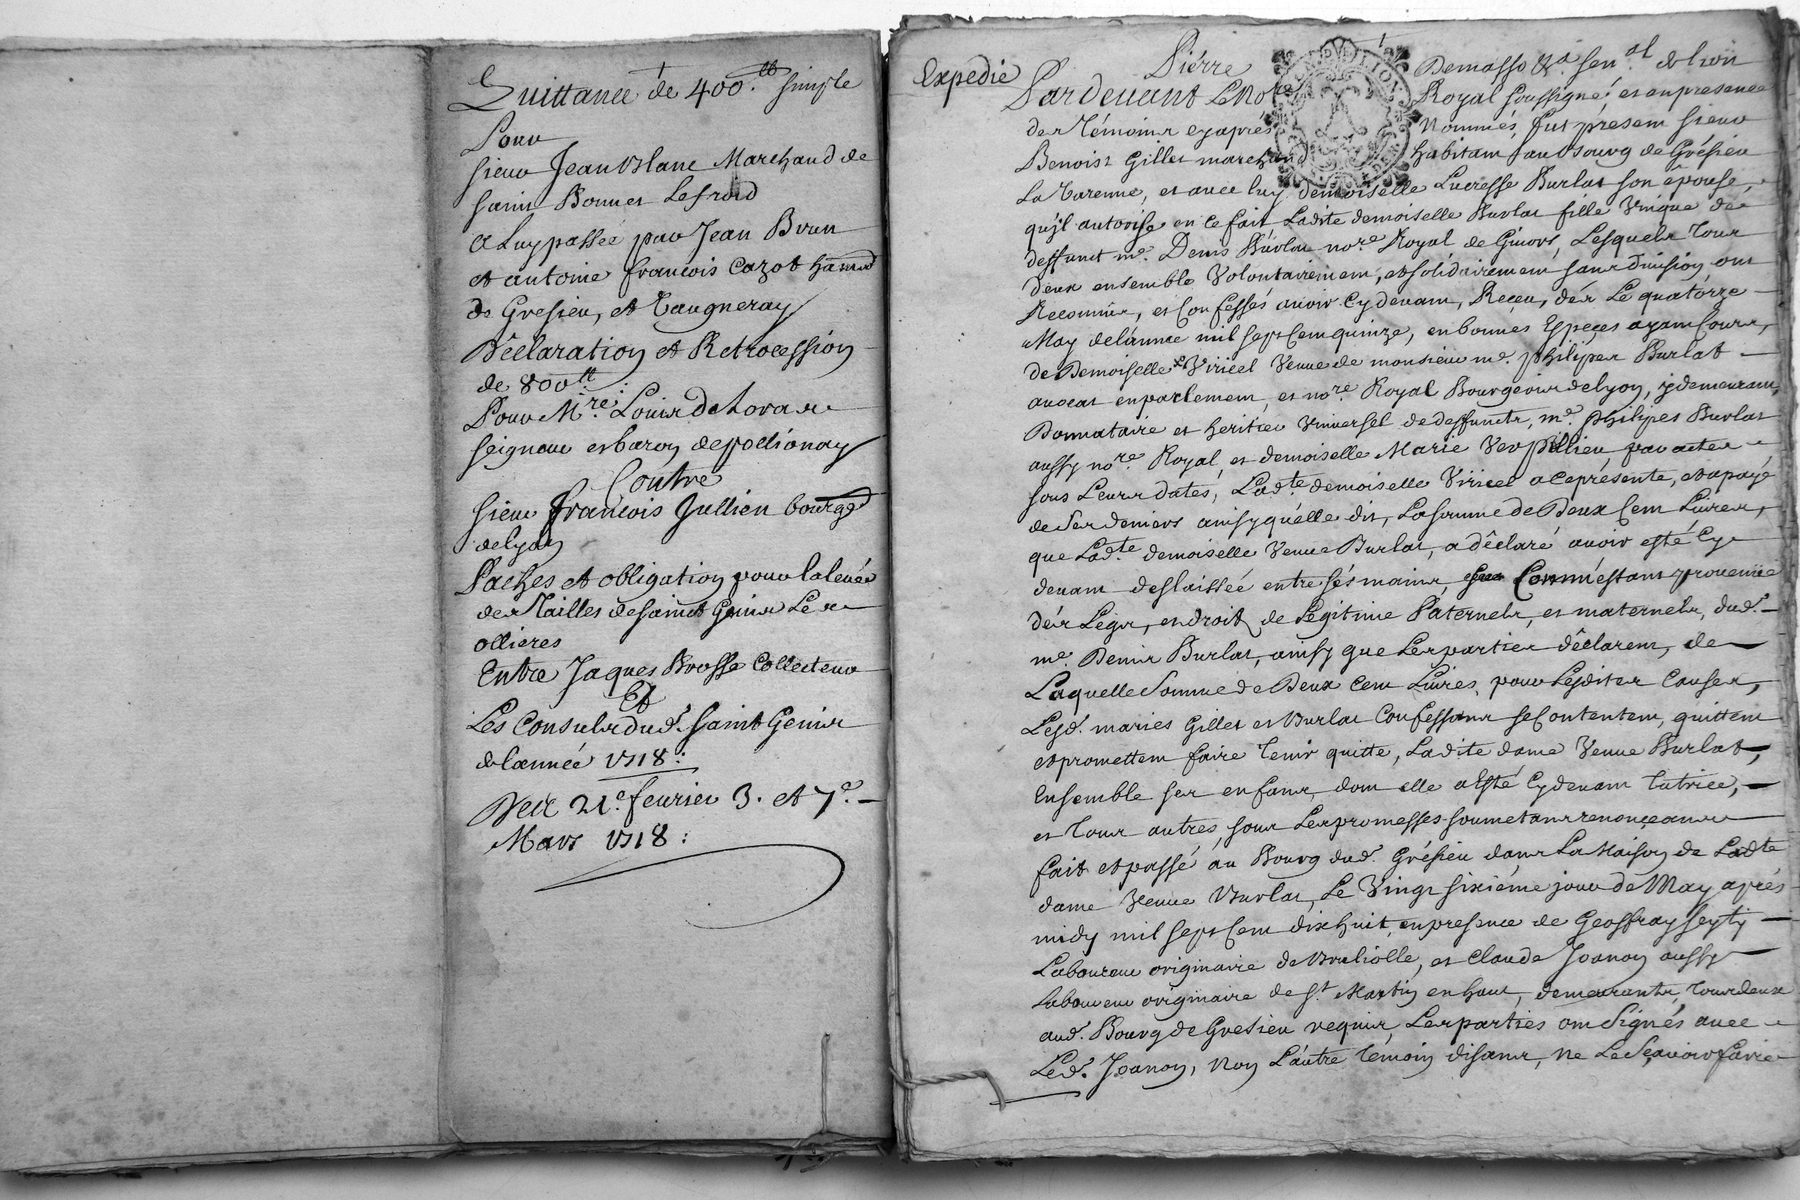 Quittance de 400.tt simple
Pour
sieur Jean Blanc Marchand de
saint Bonnet Lefroid
a Luy passée par Jean Brun
et antoine francois Cazot habitants
de Gresieu, et Vaugneray
Déclaration et Rétrocession
de 800tt:
Pour Mre: Louis De Loras
seigneur et baron de pollionay
Contre
sieur francois Jullien bourgs
de lyon
Paches et obligation pour la levée
des Tailles de saint Genis Les
ollieres
Entre Jaques Brosse Collecteur
Et
Les Consuls dud. saint Genis
de l'année 1718:
Des 21e. feurier 3. et 7e.
Mars 1718:
Expedié
Pierre Demasso &a. sen.al de lion
Pardevant Le Nore Royal soussigné, et en presence
des Témoins cy aprés Nommés, fut present sieur
Benoist Gillet marchand habitant au bourg de Grésieu
La Varenne, et avec luy demoiselle Lucresse Burlat son épouse,
qu'jl autorise en ce fait Ladite demoiselle Burlat fille Vnique de
deffunct me. Denis Burlat nore. Royal de Giuors, Lesquels Tous
deux ensemble Volontairement, et solidairement sans diuision, ont
Reconnus, et Confessés auoir Cy deuant, Receu, dés Le quatorze
May de l'année mil sept Cent quinze, en bonnes Especes ayant Cours,
de Demoiselle Viricel Veuue de monsieur me. philipes Burlat
auocat en parlement, et nore. Royal Bourgeois de lyon, y demeurant,
Donnataire et heritier Vniuersel de deffuncts, me. philipes Burlat
aussy nore. Royal, et demoiselle Marie Verpillieu par actes
sous Leurs dates, Ladte. demoiselle Viricel a ce présente, et a payé
de ses deniers ainsy qu'elle dit, La somme de Deux Cent Liures,
que Ladte. demoiselle Veuue Burlat, a déclaré auoir esté Cy
deuant deslaissée entre sés mains, Comm' estant prouenüe
dés Legs, et droit de Legitime Paternels, et maternels, dud.
me. Denis Burlat, ainsy que Les parties déclarent, de
Laquelle Somme de Deux Cent Liures, pour Lesdites Causes,
Lesd. mariés Gillet et Burlat Confessants se Contentent, quittent
et promettent faire Tenir quitte, Ladite dame Veuue Burlat,
Ensemble ses enfans, dont elle a esté Cy deuant Tutrice,
et Tous autres, sous Les promesses soumetans renonçeans
fait et passé au Bourg dud. Grésieu dans La Maison de Ladte
dame Veuue Burlat, Le Vingt sixiéme jour de May aprés
midy mil sept Cent dixhuit, en presence de Geoffray
Laboureur originaire de Brulliolle, et Claude Joanon aussy
Laboureur originaire de st. Martin en haut, demeurants, Tous deux
aud. Bourg de Gresieu requis, Les parties ont Signés avec
Led. Joanon, Non L'autre Témoin disant, Ne Le Sçauoir faire